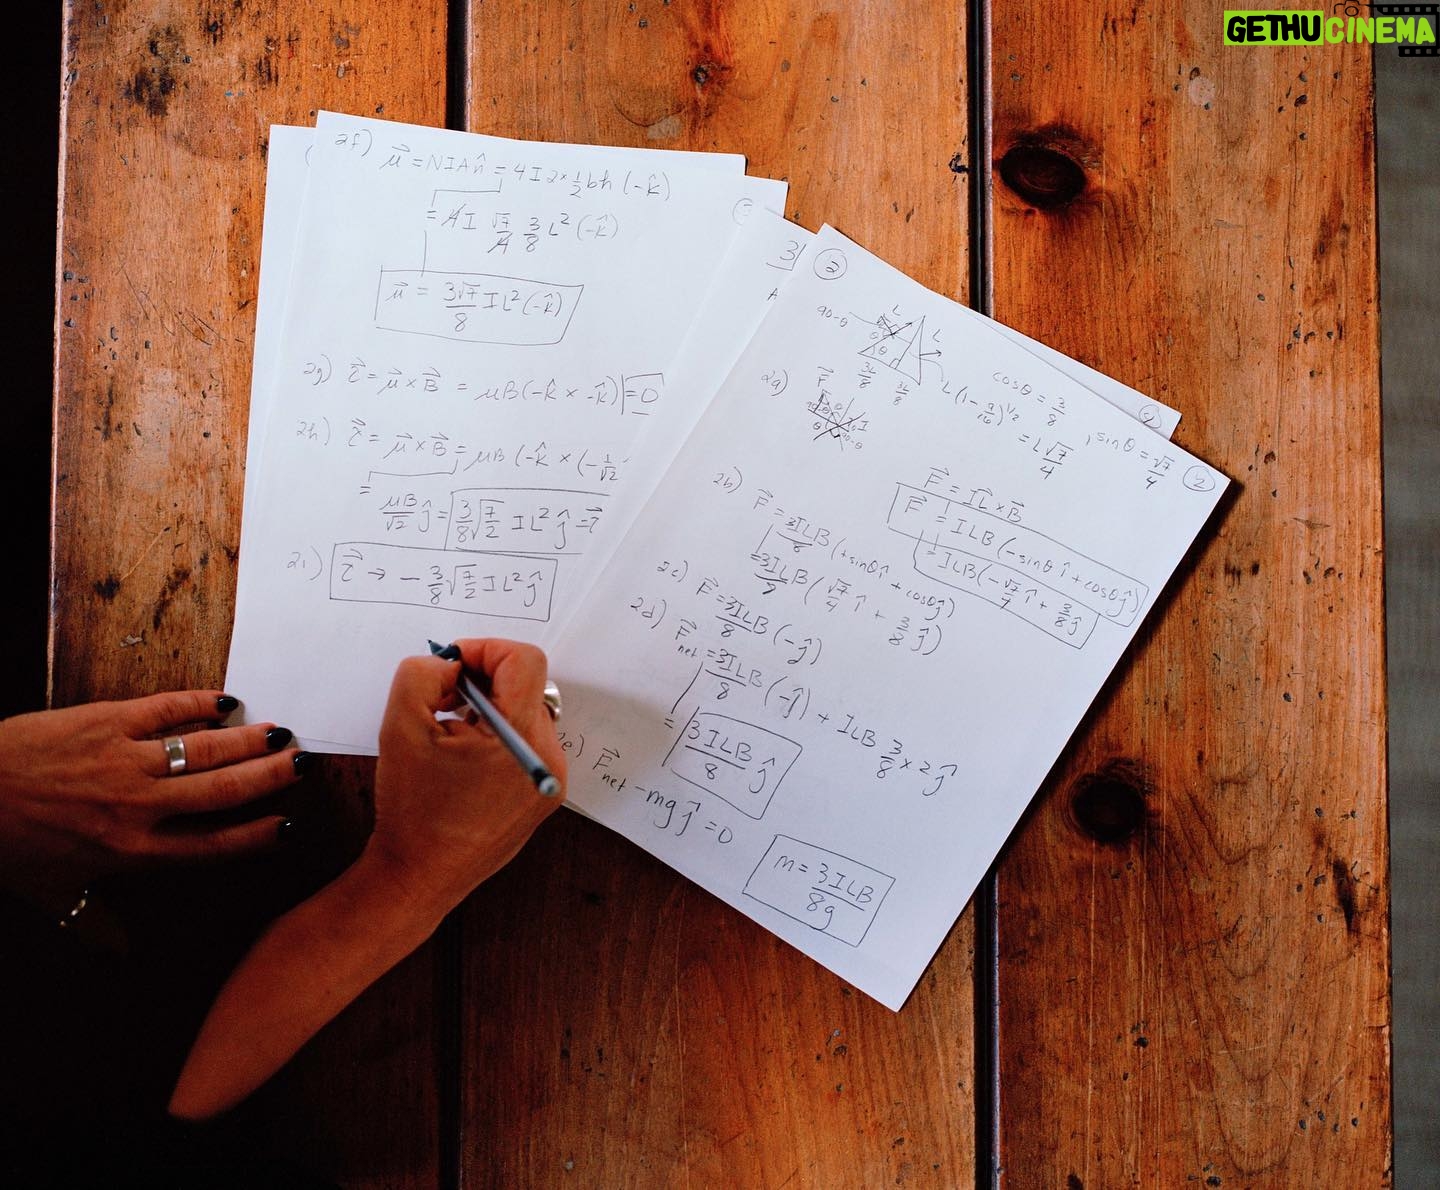 GETHUCINEMA
2f) μ⃗ = NIAn̂ = 4I2×½bh (-k̂)
= 4I √7/4 3/8 L² (-k̂)
μ⃗ = 3√7/8 IL² (-k̂)
2g) τ⃗ = μ⃗ × B⃗ = μB(-k̂ × -k̂) = 0
2h) τ⃗ = μ⃗ × B⃗ = μB (-k̂ × (-1/√2
= μB/√2 ĵ = 3/8 √7/2 IL² ĵ = τ⃗
2i) τ⃗ → - 3/8 √7/2 IL² ĵ
3
2
90-θ
L
L
θ
θ
3L/8
3L/8
L(1-9/16)^1/2
= L√7/4
cosθ = 3/8, sinθ = √7/4
2
2a) F⃗
F⃗ = IL⃗ × B⃗
F⃗ = ILB (-sinθ î + cosθ ĵ)
= ILB(-√7/4 î + 3/8 ĵ)
2b) F⃗ = 3ILB/8 (+sinθ î + cosθ ĵ)
= 3ILB (√7/4 î + 3/8 ĵ)
2c) F⃗ = 3ILB/8 (-ĵ)
2d) F⃗net = 3ILB/8 (-ĵ) + ILB 3/8 × 2 ĵ
= 3ILB/8 ĵ
2e) F⃗net - mg ĵ = 0
m = 3ILB/8g